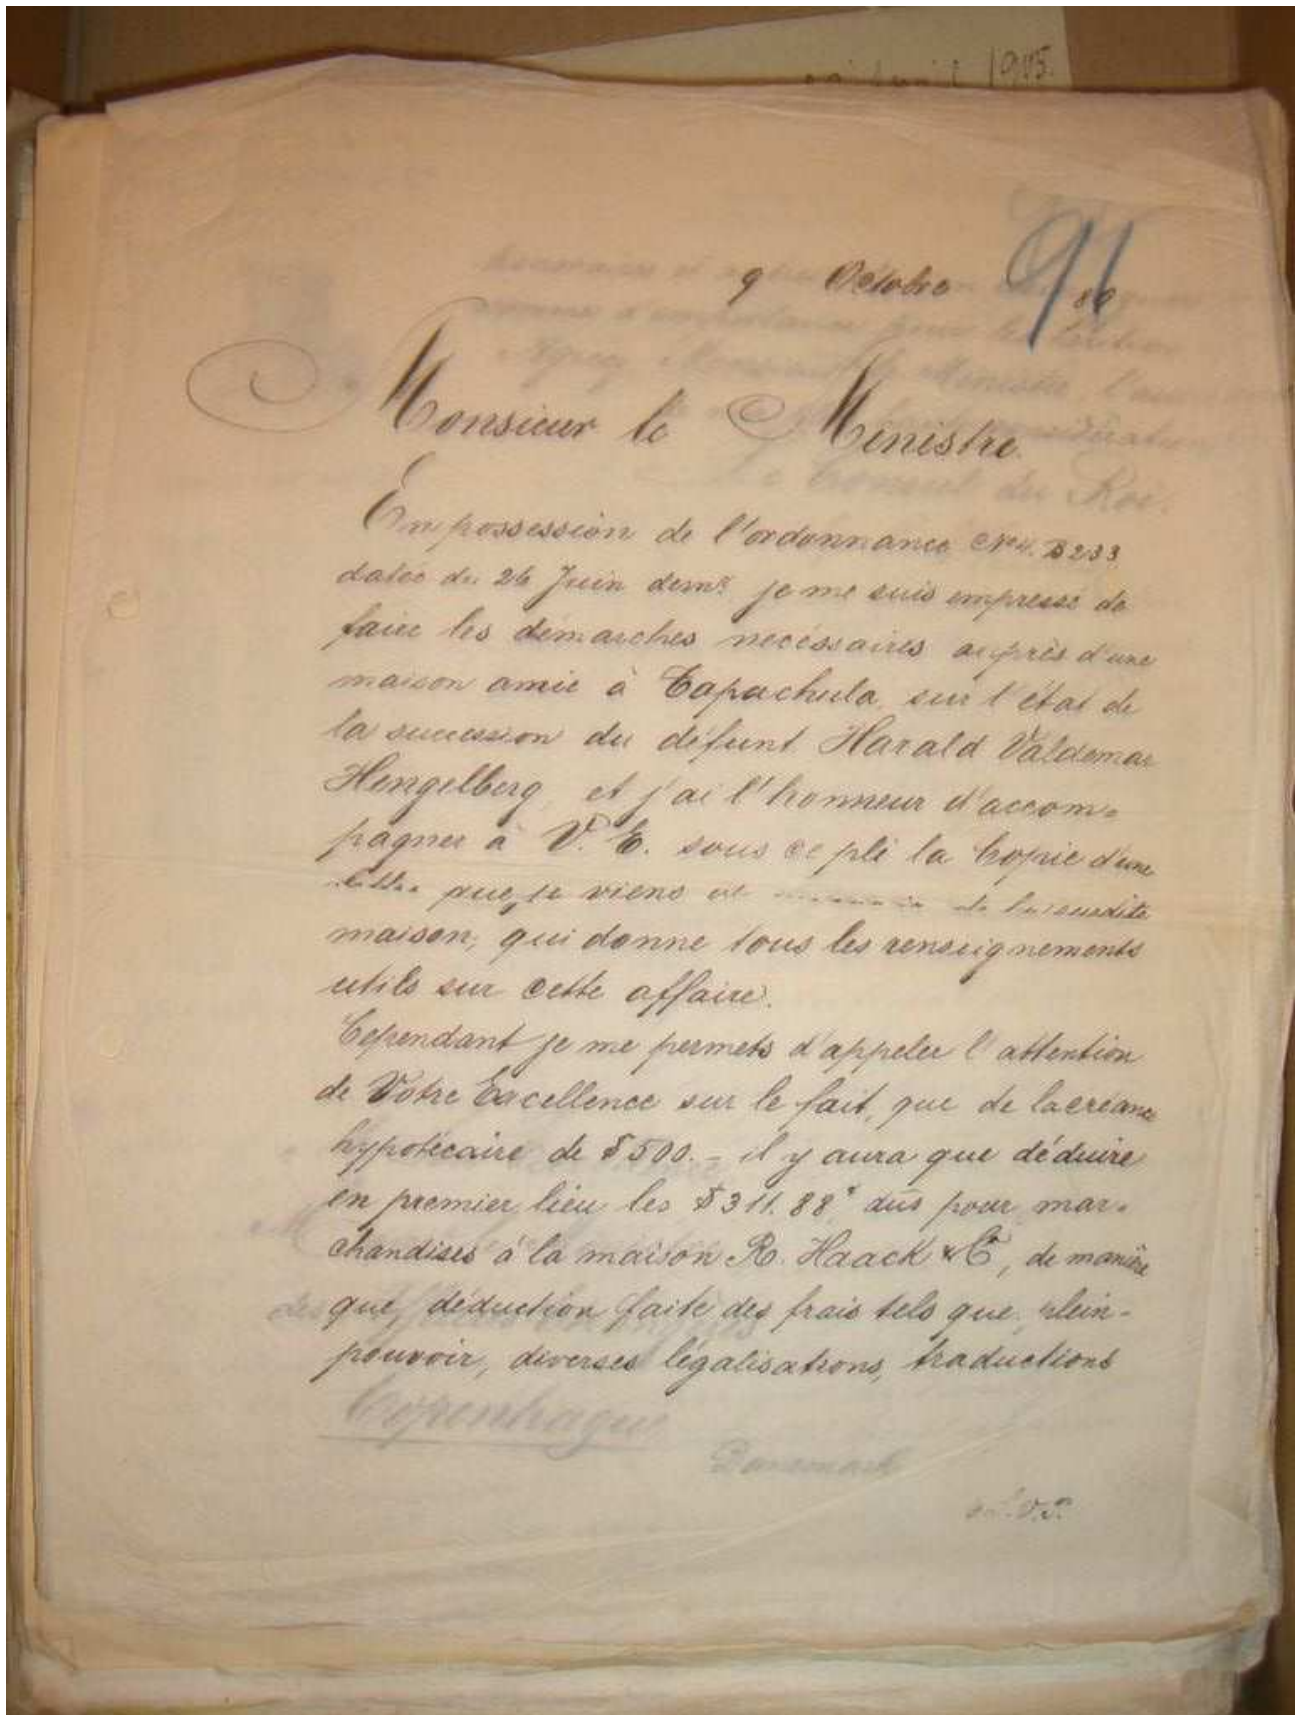 1905.
91
9 Octobre 89
Monsieur le Ministre.
En possession de l'ordonnance N° 4. B233
datée du 26 Juin dern.r je me suis empressé de
faire les démarches necéssaires auprès d'une
maison amie à Tapachula, sur l'état de
la succession du défunt Harald Valdemar
Hengelberg, et j'ai l'honneur d'accom-
pagner à V. E. sous ce pli la Copie d'une
que je viens de la susdite
maison, qui donne tous les renseignements
utils sur cette affaire.
Cependant je me permets d'appeler l'attention
de Votre Excellence sur le fait, que de la créance
hypotécaire de $500.- il y aura que déduire
en premier lieu les $311.88 dûs pour mar-
chandises à la maison R. Haack & Co, de manière
que, déduction faite des frais tels que, plein-
pouvoir, diverses légalisations, traductions
Copenhague
Danemark